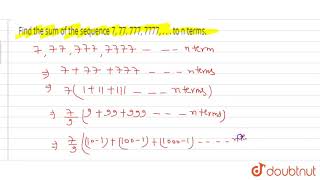 Find the sum of the sequence 7, 77, 777, 7777, . . . to n terms.
7, 77, 777, 7777 - - - - n term
⇒ 7 + 77 + 777 - - - - - n terms
⇒ 7 ( 1 + 11 + 111 - - - - n terms)
⇒ 7/9 ( 9 + 99 + 999 - - - - n terms)
⇒ 7/9 ( (10-1) + (100-1) + (1000-1) - - - -
doubtnut